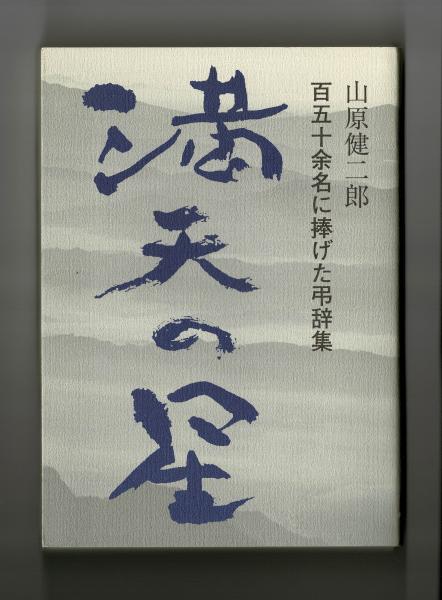 山原健二郎
百五十余名に捧げた弔辞集
満天の星